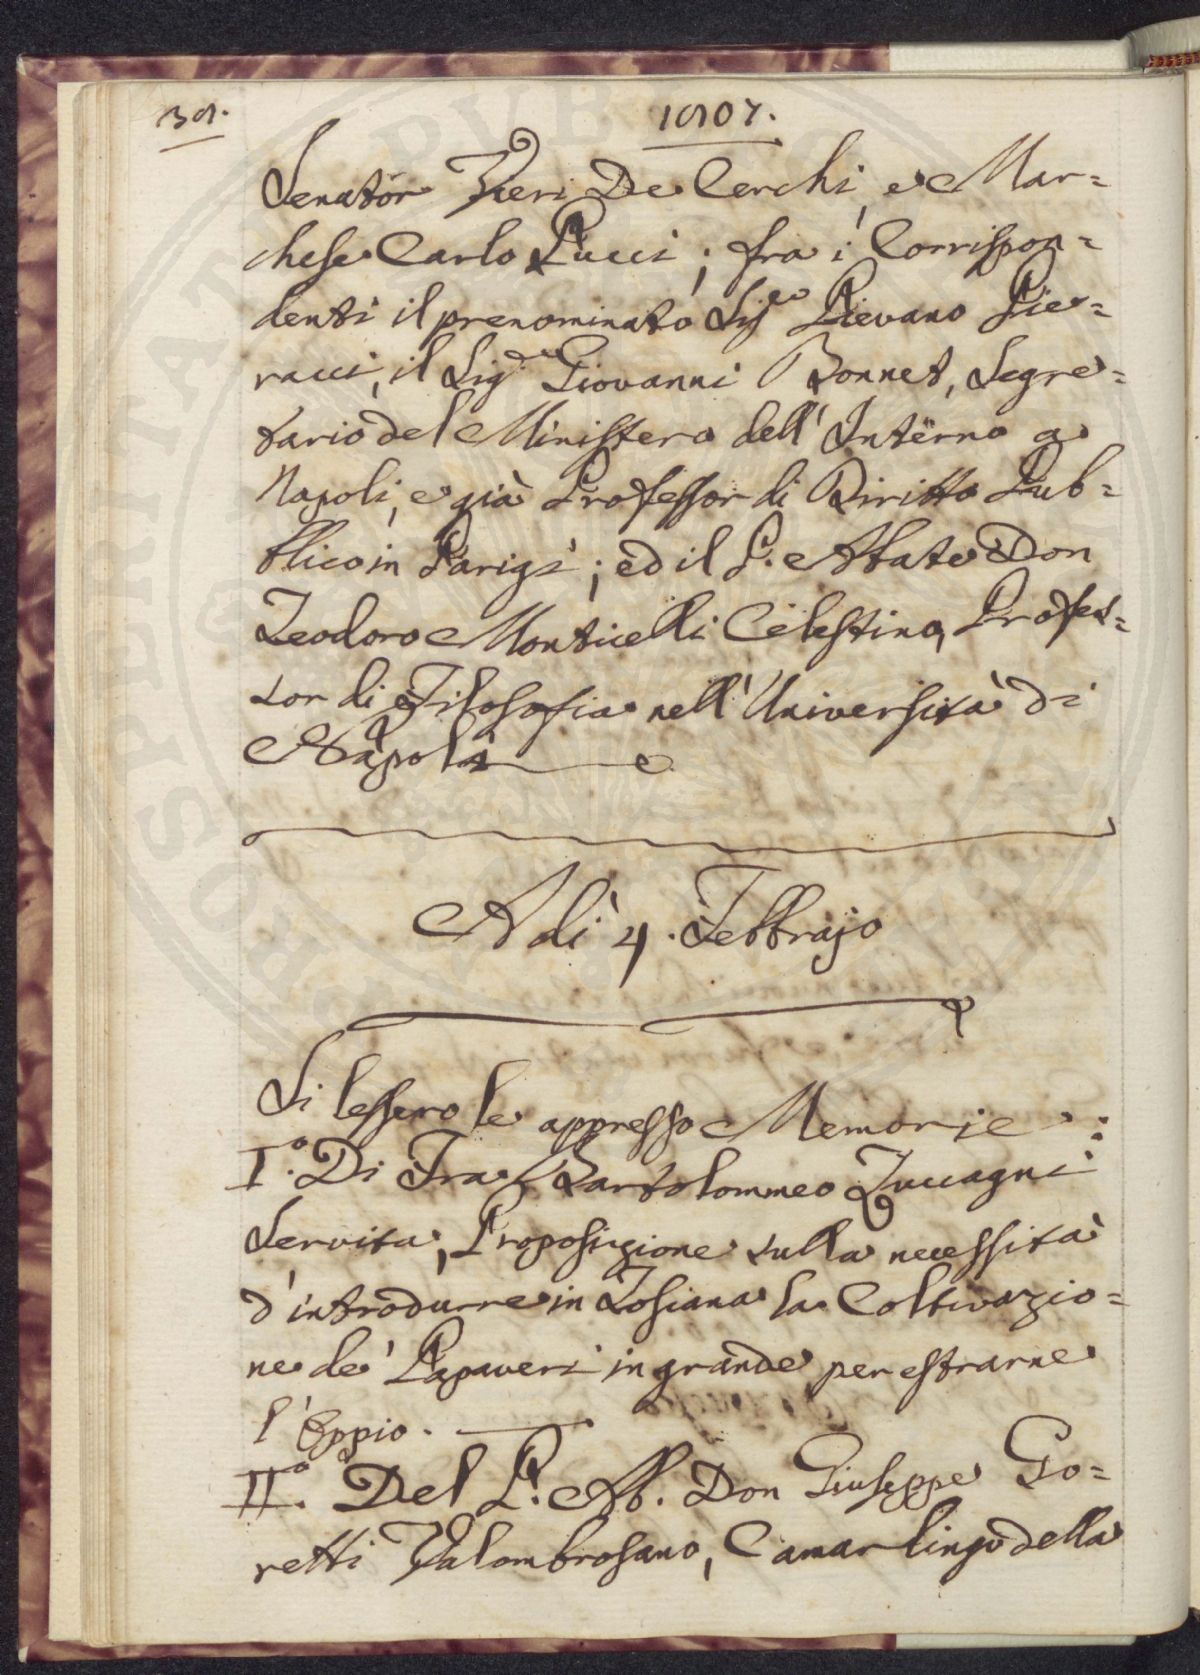 38.
1807.
Senator Vieri De Cerchi, e Mar=
chese Carlo Pucci; fra i Corrispon=
denti il prenominato Sig.re Pievano Pie=
racci, il Sig.re Giovanni Bonnet, Segre=
tario del Ministero dell'Interno a
Napoli, e già Professor di Diritto Pub=
blico in Parigi; ed il P. Abate Don
Teodoro Monticelli Celestino, Profes=
sor di Filosofia nell'Università di
Napoli
A dì 4. Febbrajo
Si lessero le appresso Memorie:
I.° Di Fra Bartolommeo Zuccagni
Servita, Proposizione sulla necessità
d'introdurre in Tosana la Coltivazio=
ne de' Papaveri in grande per estrarne
l'Oppio.
II.° Del P. Ab. Don Giuseppe Go=
retti Valombrosano, Camarlingo della